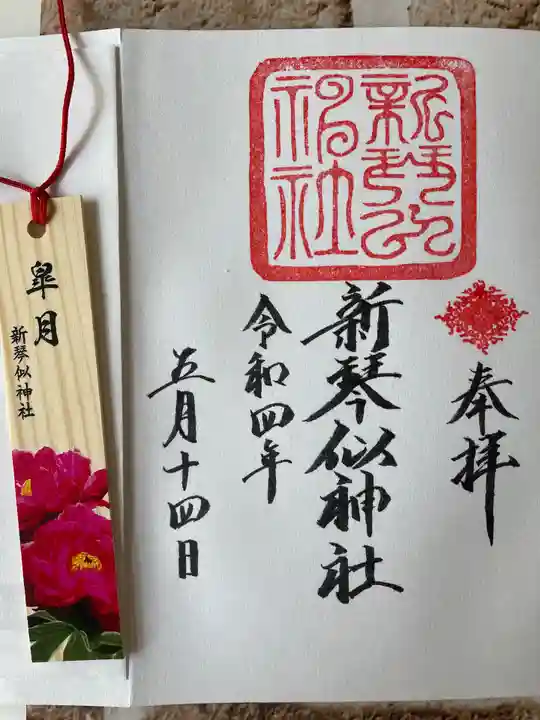 奉拝
新琴似
神社
新琴似神社
令和四年
五月十四日
皐月
新琴似神社